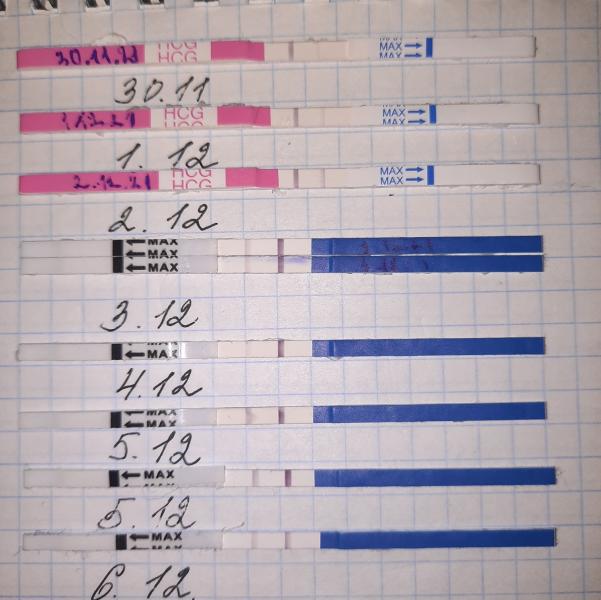 30.11.21 HCG MAX
HCG MAX
30.11
1.12.21 HCG MAX
HCG MAX
1. 12
2.12.21 HCG MAX
HCG MAX
2. 12
MAX
MAX
MAX
3. 12
MAX
MAX
4. 12
MAX
MAX
5. 12
MAX
MAX
5. 12
MAX
MAX
6. 12.